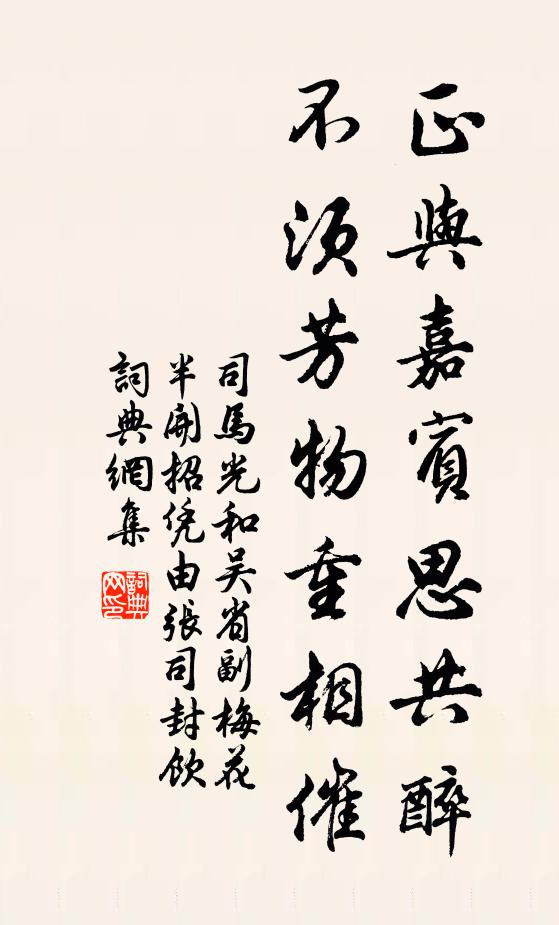 正與嘉賓思共醉
不須芳物重相催
司馬光和吴省副梅花
半開招凭由張司封飲
詞典網集
詞典网印